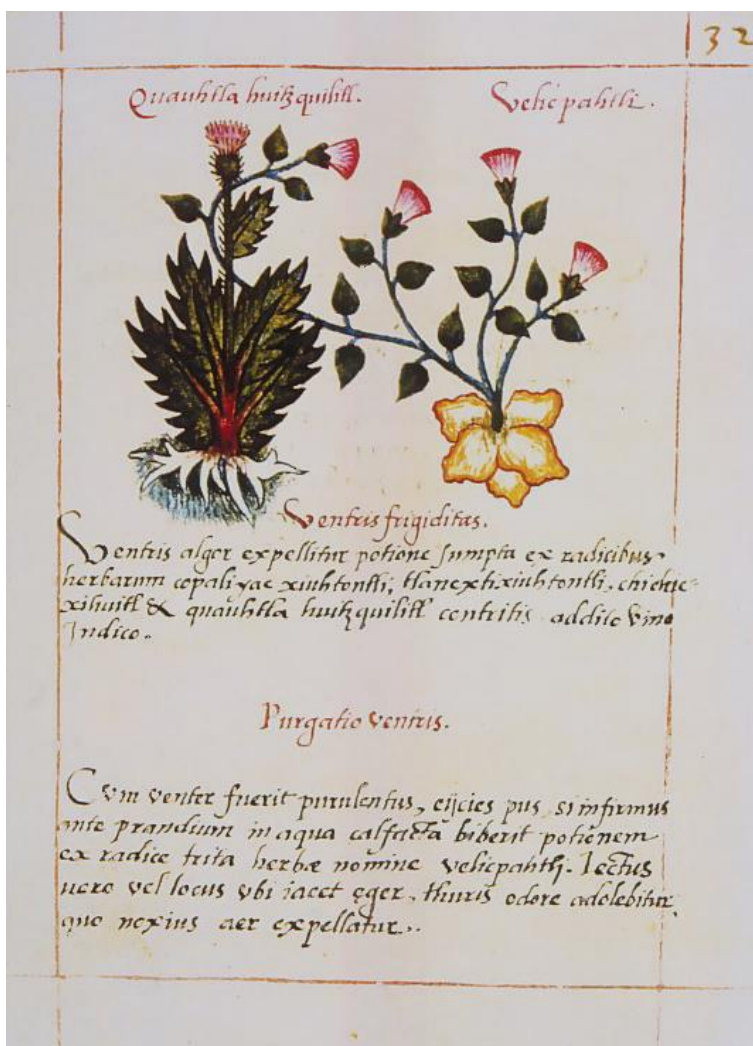 32
Quauhtla huitzquilitl. Velicpahtli.
Ventris frigiditas.
Ventris algor expellitur potione sumpta ex radicibus
herbarum copaliyac xiuhtontli, tlanextixiuhtontli, chichic=
xihuitl & quauhtla huitzquilitl contritis addito vino
Indico.
Purgatio ventris.
Cum venter fuerit purulentus, eijcies pus, si infirmus
ante prandium in aqua calfacta biberit potionem
ex radice trita herbæ nomine velicpahtli. Lectus
uero vel locus vbi iacet ęger, thuris odore adolebitur,
quo noxius aer expellatur.